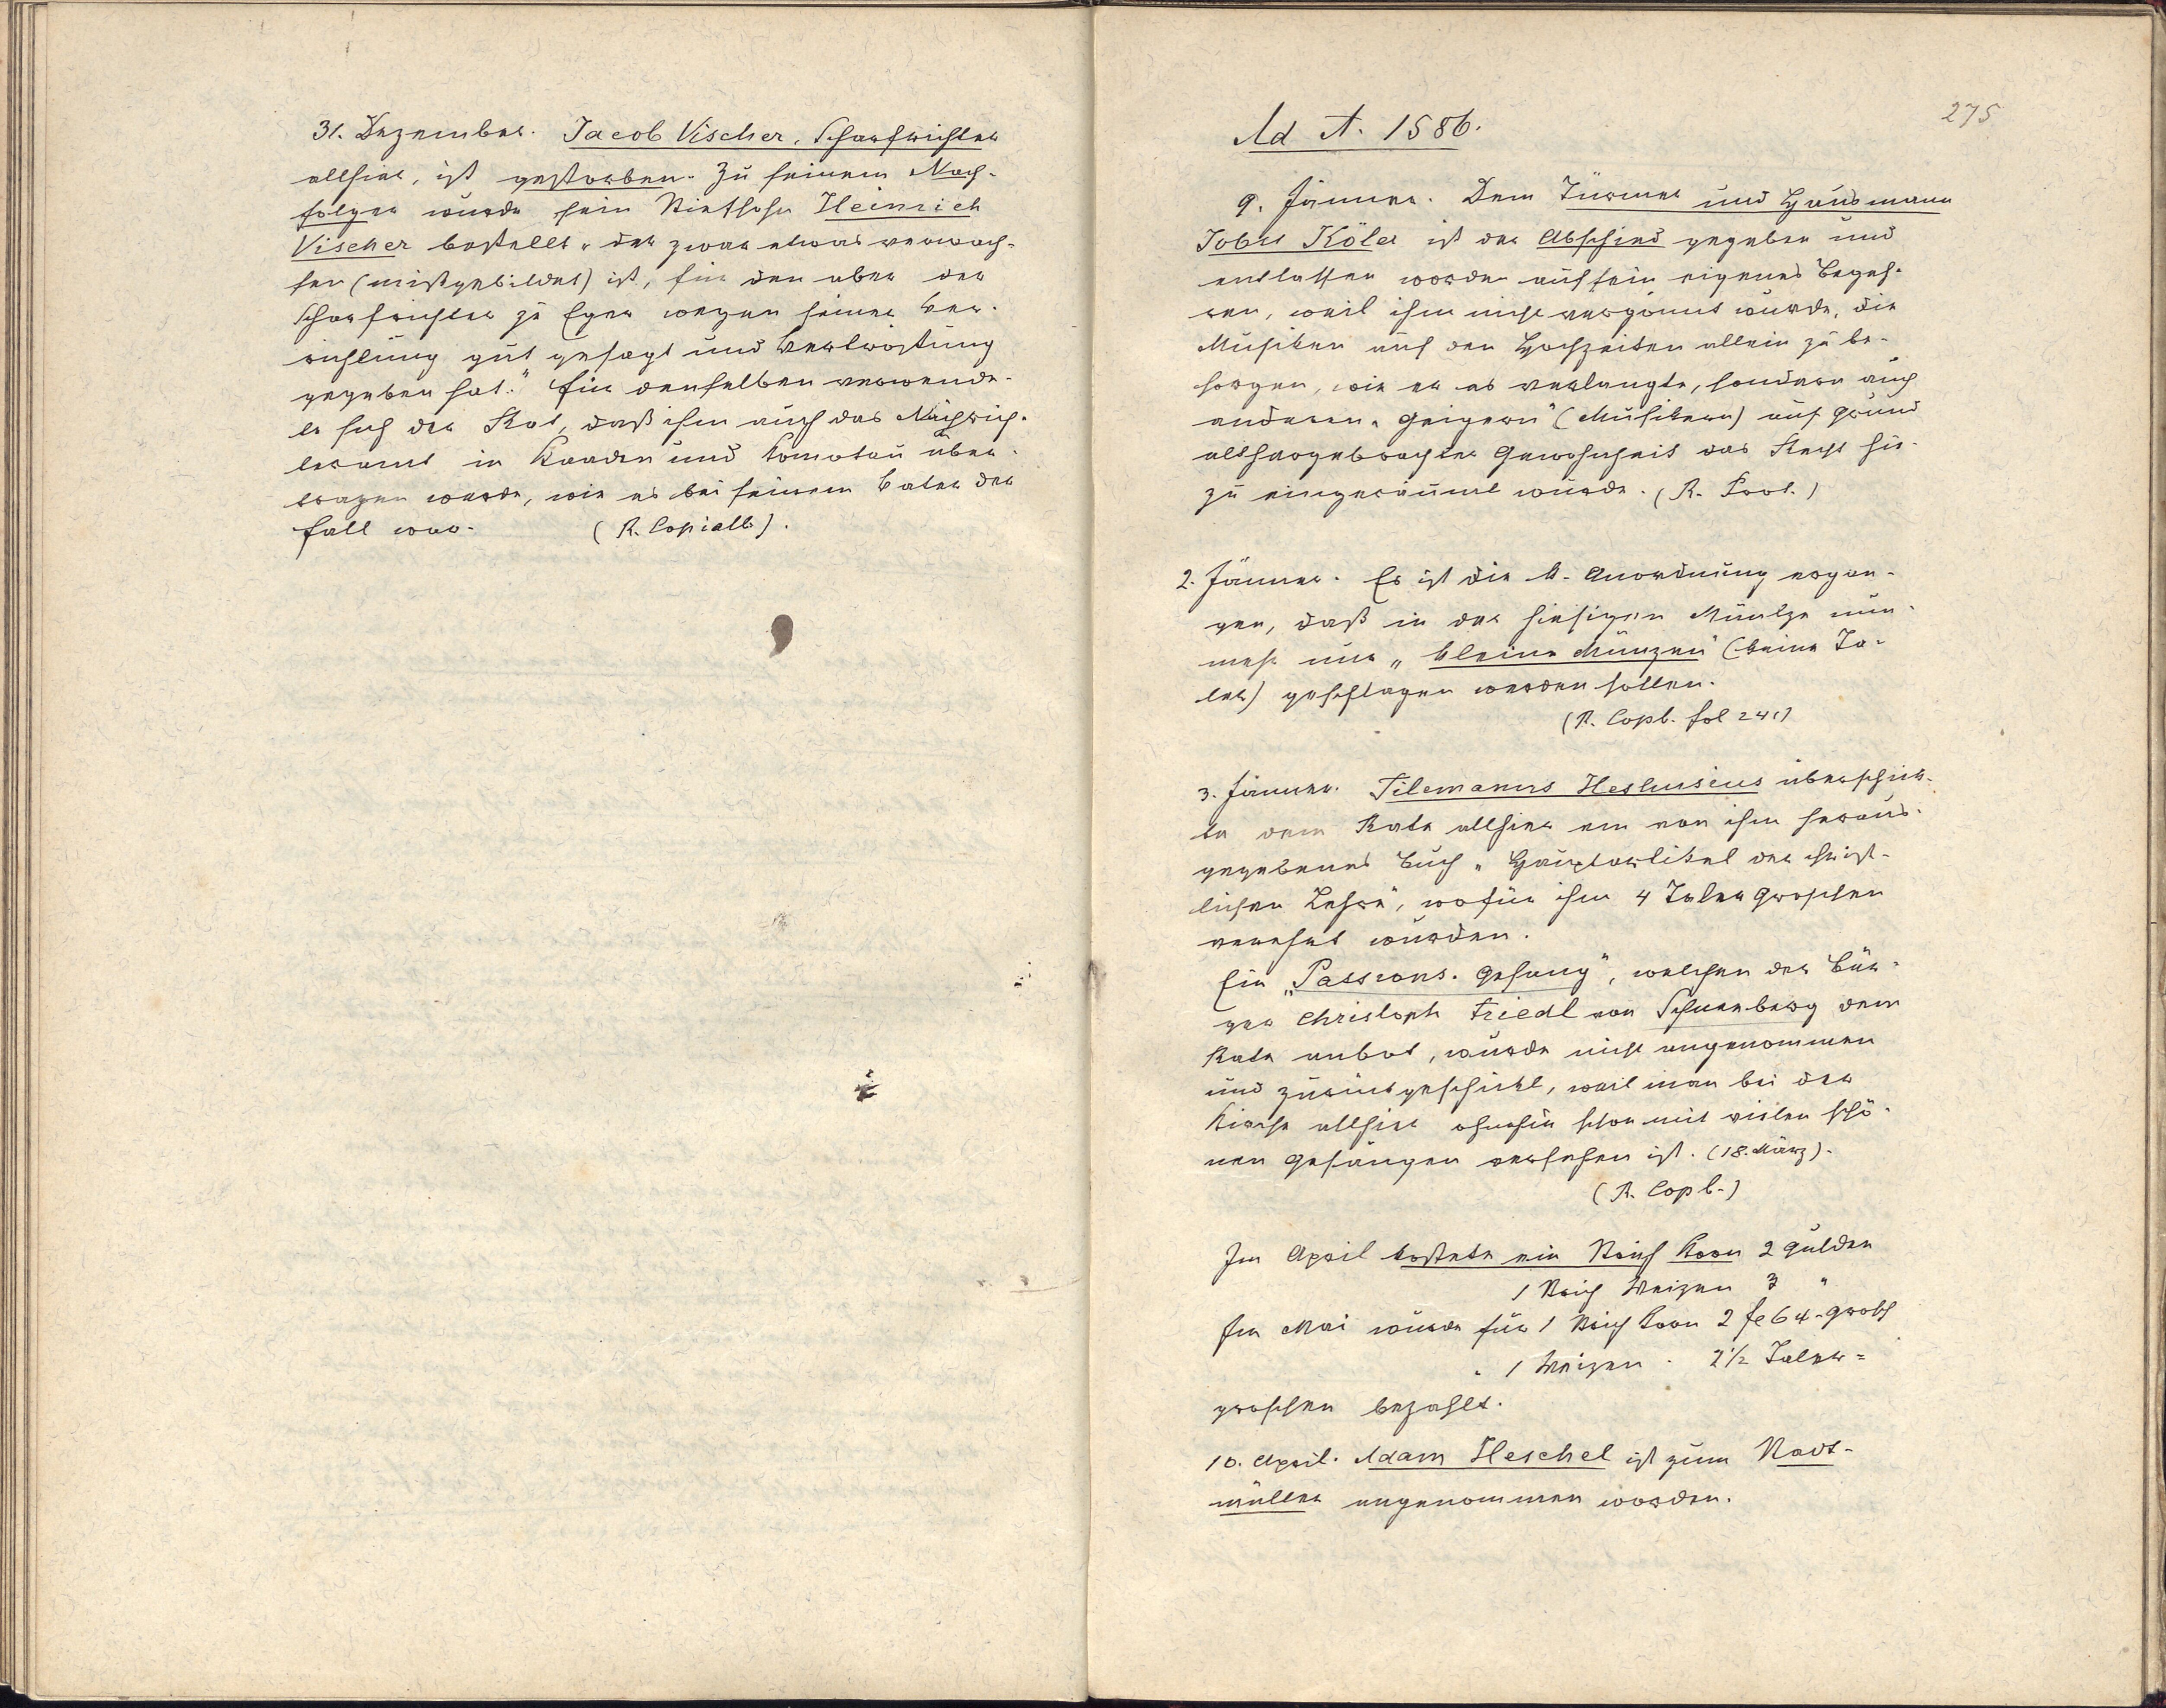 31. Dezember. Jacob Vischer, Scharfrichter
allhier, ist gestorben. Zu seinem Nach-
folger wurde sein Stiefsohn Heinrich
Vischer bestellt „der zwar etwas verwach-
sen (mißgebildet) ist, für den aber der
Scharfrichter zu Eger wegen seiner Ver-
richtung gut gesagt und Vertröstung
gegeben hat." Für denselben verwende-
te sich der Rat, daß ihm auch das Nachrich-
teramt in Kaaden und Komotau über-
tragen werde, wie es bei seinem Vater der
Fall war. (R. Copialb.).
275
Ad A. 1586.
9. Jänner. Dem Türmer und Hausmann
Jobst Köler ist der Abschied gegeben und
entlassen worden auf sein eigenes Begeh-
ren, weil ihm nicht vergönnt wurde, die
Musiken auf den Hochzeiten allein zu be-
sorgen, wie er es verlangte, sondern auch
anderen „Geigern" (Musikern) auf Grund
althergebrachter Gewohnheit das Recht hie-
zu eingeräumt wurde. (R. Prot.)
2. Jänner. Es ist die k. Anordnung ergan-
gen, daß in der hiesigen Müntze nun-
mehr nur „kleine Münzen" (keine Ta-
ler) geschlagen werden sollen.
(R. Copb. fol 241)
3. Jänner. Tilemanus Heshusius überschick-
te dem Rate allhier ein von ihm heraus-
gegebenes Buch „Hauptartikel der christ-
lichen Lehre", wofür ihm 4 Taler Groschen
verehrt wurden.
Ein „Passions-Gesang", welchen der Bür-
ger Christoph Friedl von Schneeberg dem
Rate anbot, wurde nicht angenommen
und zurückgeschickt, weil man bei der
Kirche allhier ohnehin schon mit vielen schö-
nen Gesängen versehen ist. (18. März).
(R. Copb.)
Im April kostete ein Strich Korn 2 Gulden
1 Strich Weizen 3 "
Im Mai wurde für 1 Strich Korn 2 fl 64 Grosch
" 1 Weizen 2 1/2 Taler=
groschen bezahlt.
10. April. Adam Heschel ist zum Stadt-
müller angenommen worden.